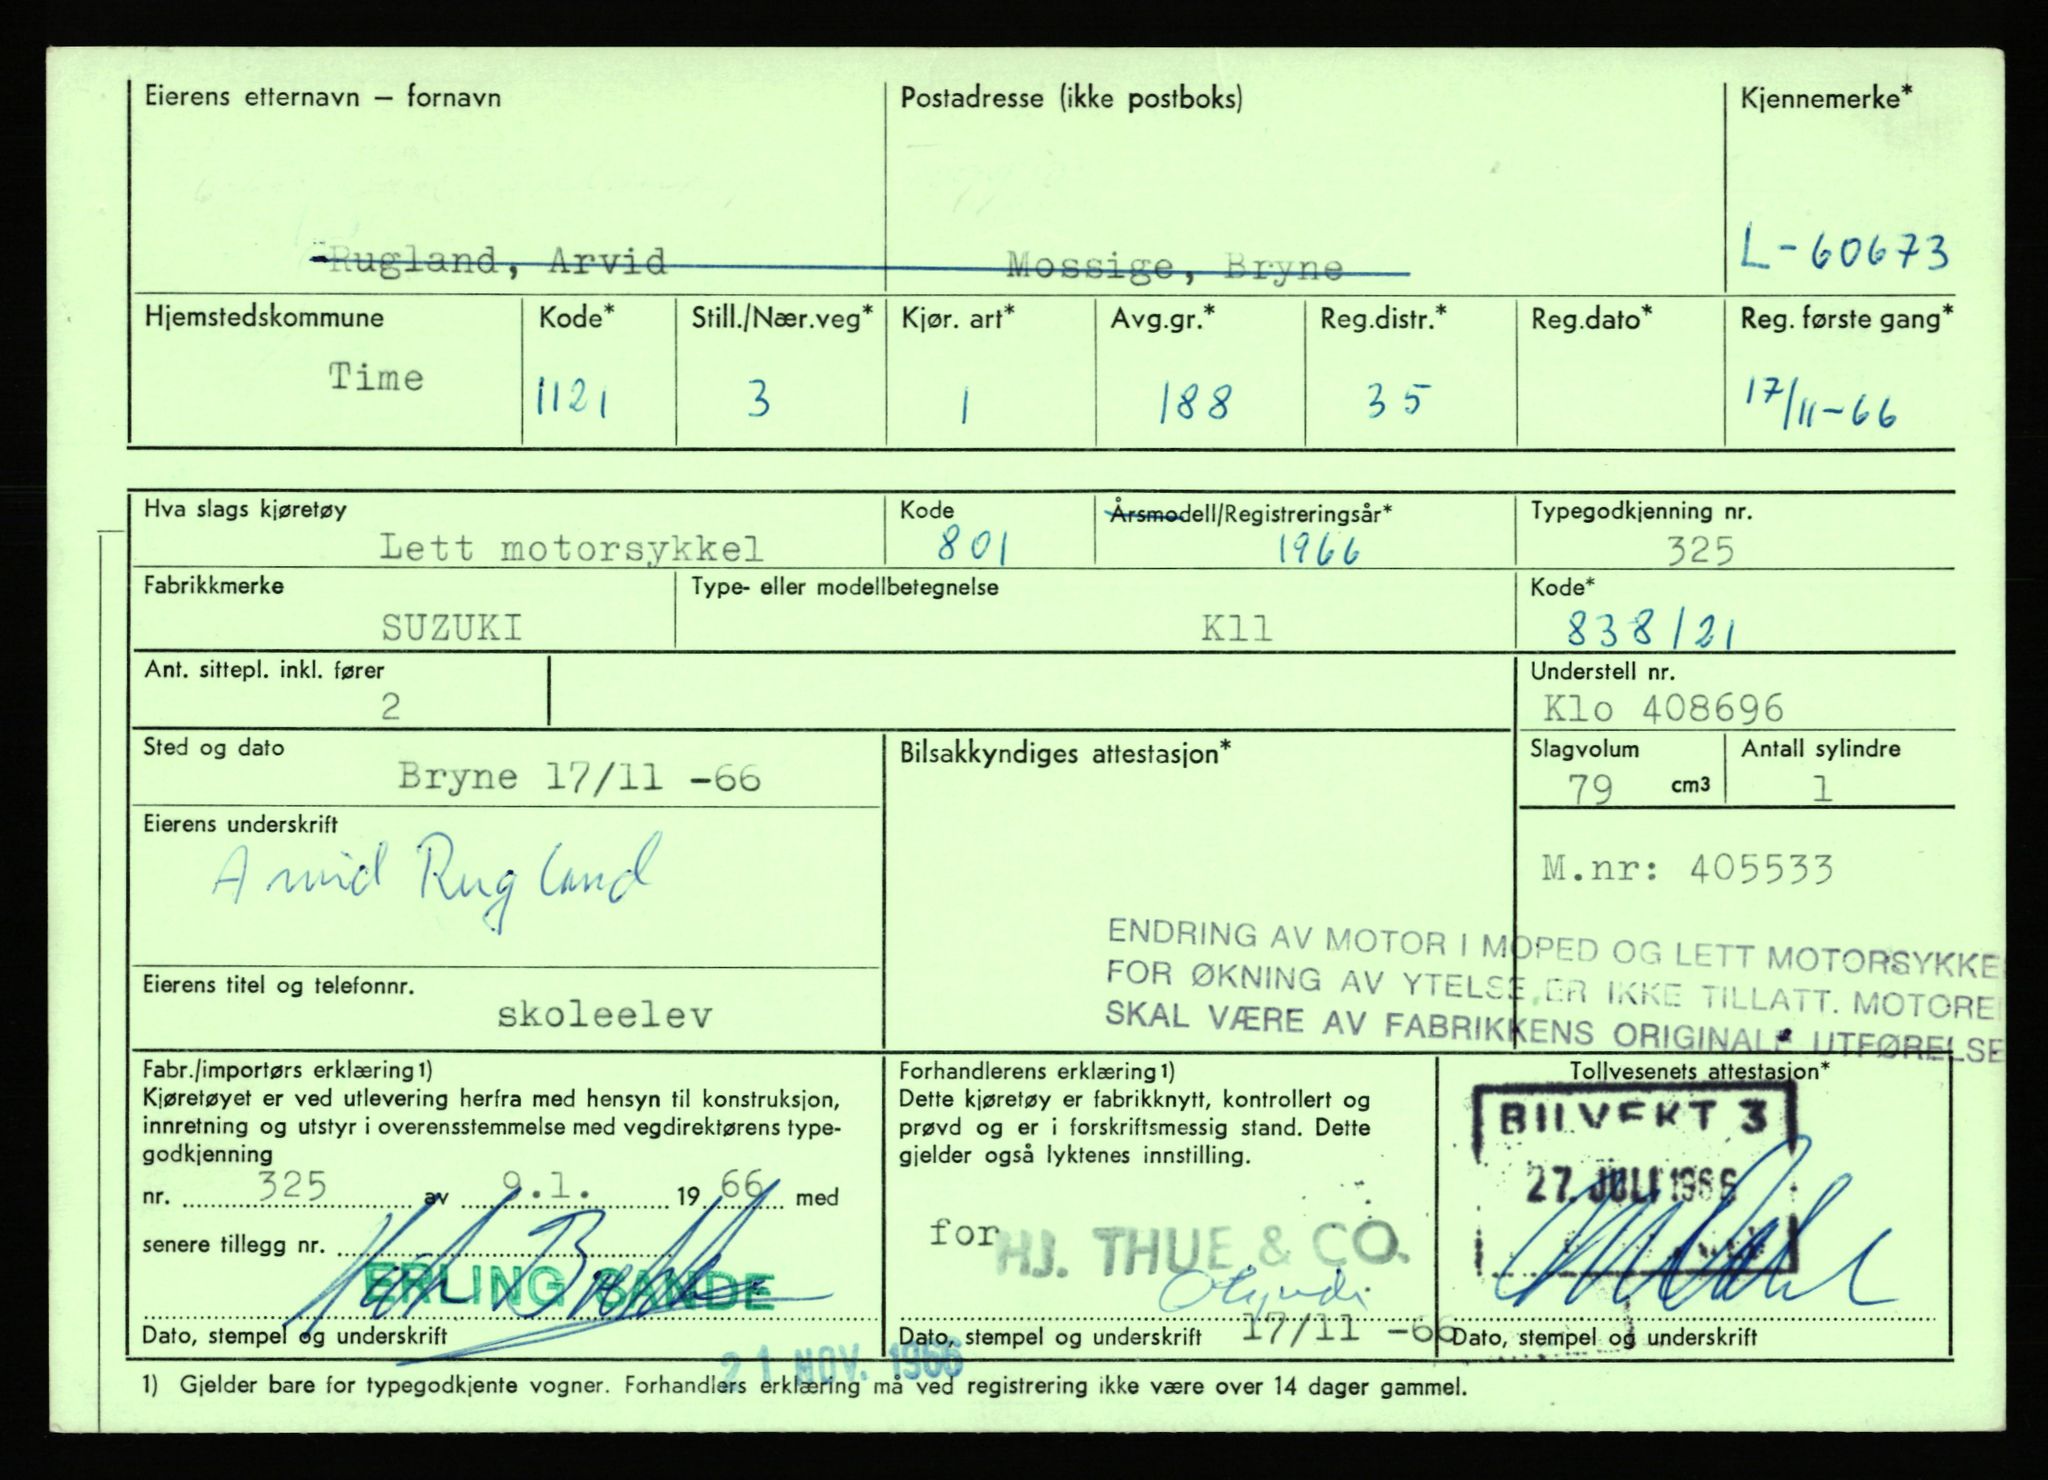 Eierens etternavn – fornavn
Postadresse (ikke postboks)
Kjennemerke*
Rugland, Arvid
Mossige, Bryne
L-60673
Hjemstedskommune
Kode*
Still./Nær.veg*
Kjør. art*
Avg.gr.*
Reg.distr.*
Reg.dato*
Reg. første gang*
Time
1121
3
1
188
35
17/11-66
Hva slags kjøretøy
Kode
Årsmodell/Registreringsår*
Typegodkjenning nr.
Lett motorsykkel
801
1966
325
Fabrikkmerke
Type- eller modellbetegnelse
Kode*
SUZUKI
K11
838/21
Ant. sittepl. inkl. fører
Understell nr.
2
Klo 408696
Sted og dato
Bilsakkyndiges attestasjon*
Slagvolum
Antall sylindre
Bryne 17/11 -66
79 cm3
1
Eierens underskrift
Arvid Rugland
M.nr: 405533
ENDRING AV MOTOR I MOPED OG LETT MOTORSYKKE
FOR ØKNING AV YTELSE ER IKKE TILLATT. MOTORE
SKAL VÆRE AV FABRIKKENS ORIGINALE UTFØRELSE
Eierens titel og telefonnr.
skoleelev
Fabr./importørs erklæring1)
Kjøretøyet er ved utlevering herfra med hensyn til konstruksjon,
innretning og utstyr i overensstemmelse med vegdirektørens type-
godkjenning
nr. 325 av 9.1. 1966 med
senere tillegg nr.
ERLING SANDE
Dato, stempel og underskrift
Forhandlerens erklæring1)
Dette kjøretøy er fabrikknytt, kontrollert og
prøvd og er i forskriftsmessig stand. Dette
gjelder også lyktenes innstilling.
for HJ. THUE & CO.
Dato, stempel og underskrift 17/11 -66
Tollvesenets attestasjon*
BILVEKT 3
27. JULI 1966
Dato, stempel og underskrift
21 NOV. 1966
1) Gjelder bare for typegodkjente vogner. Forhandlers erklæring må ved registrering ikke være over 14 dager gammel.